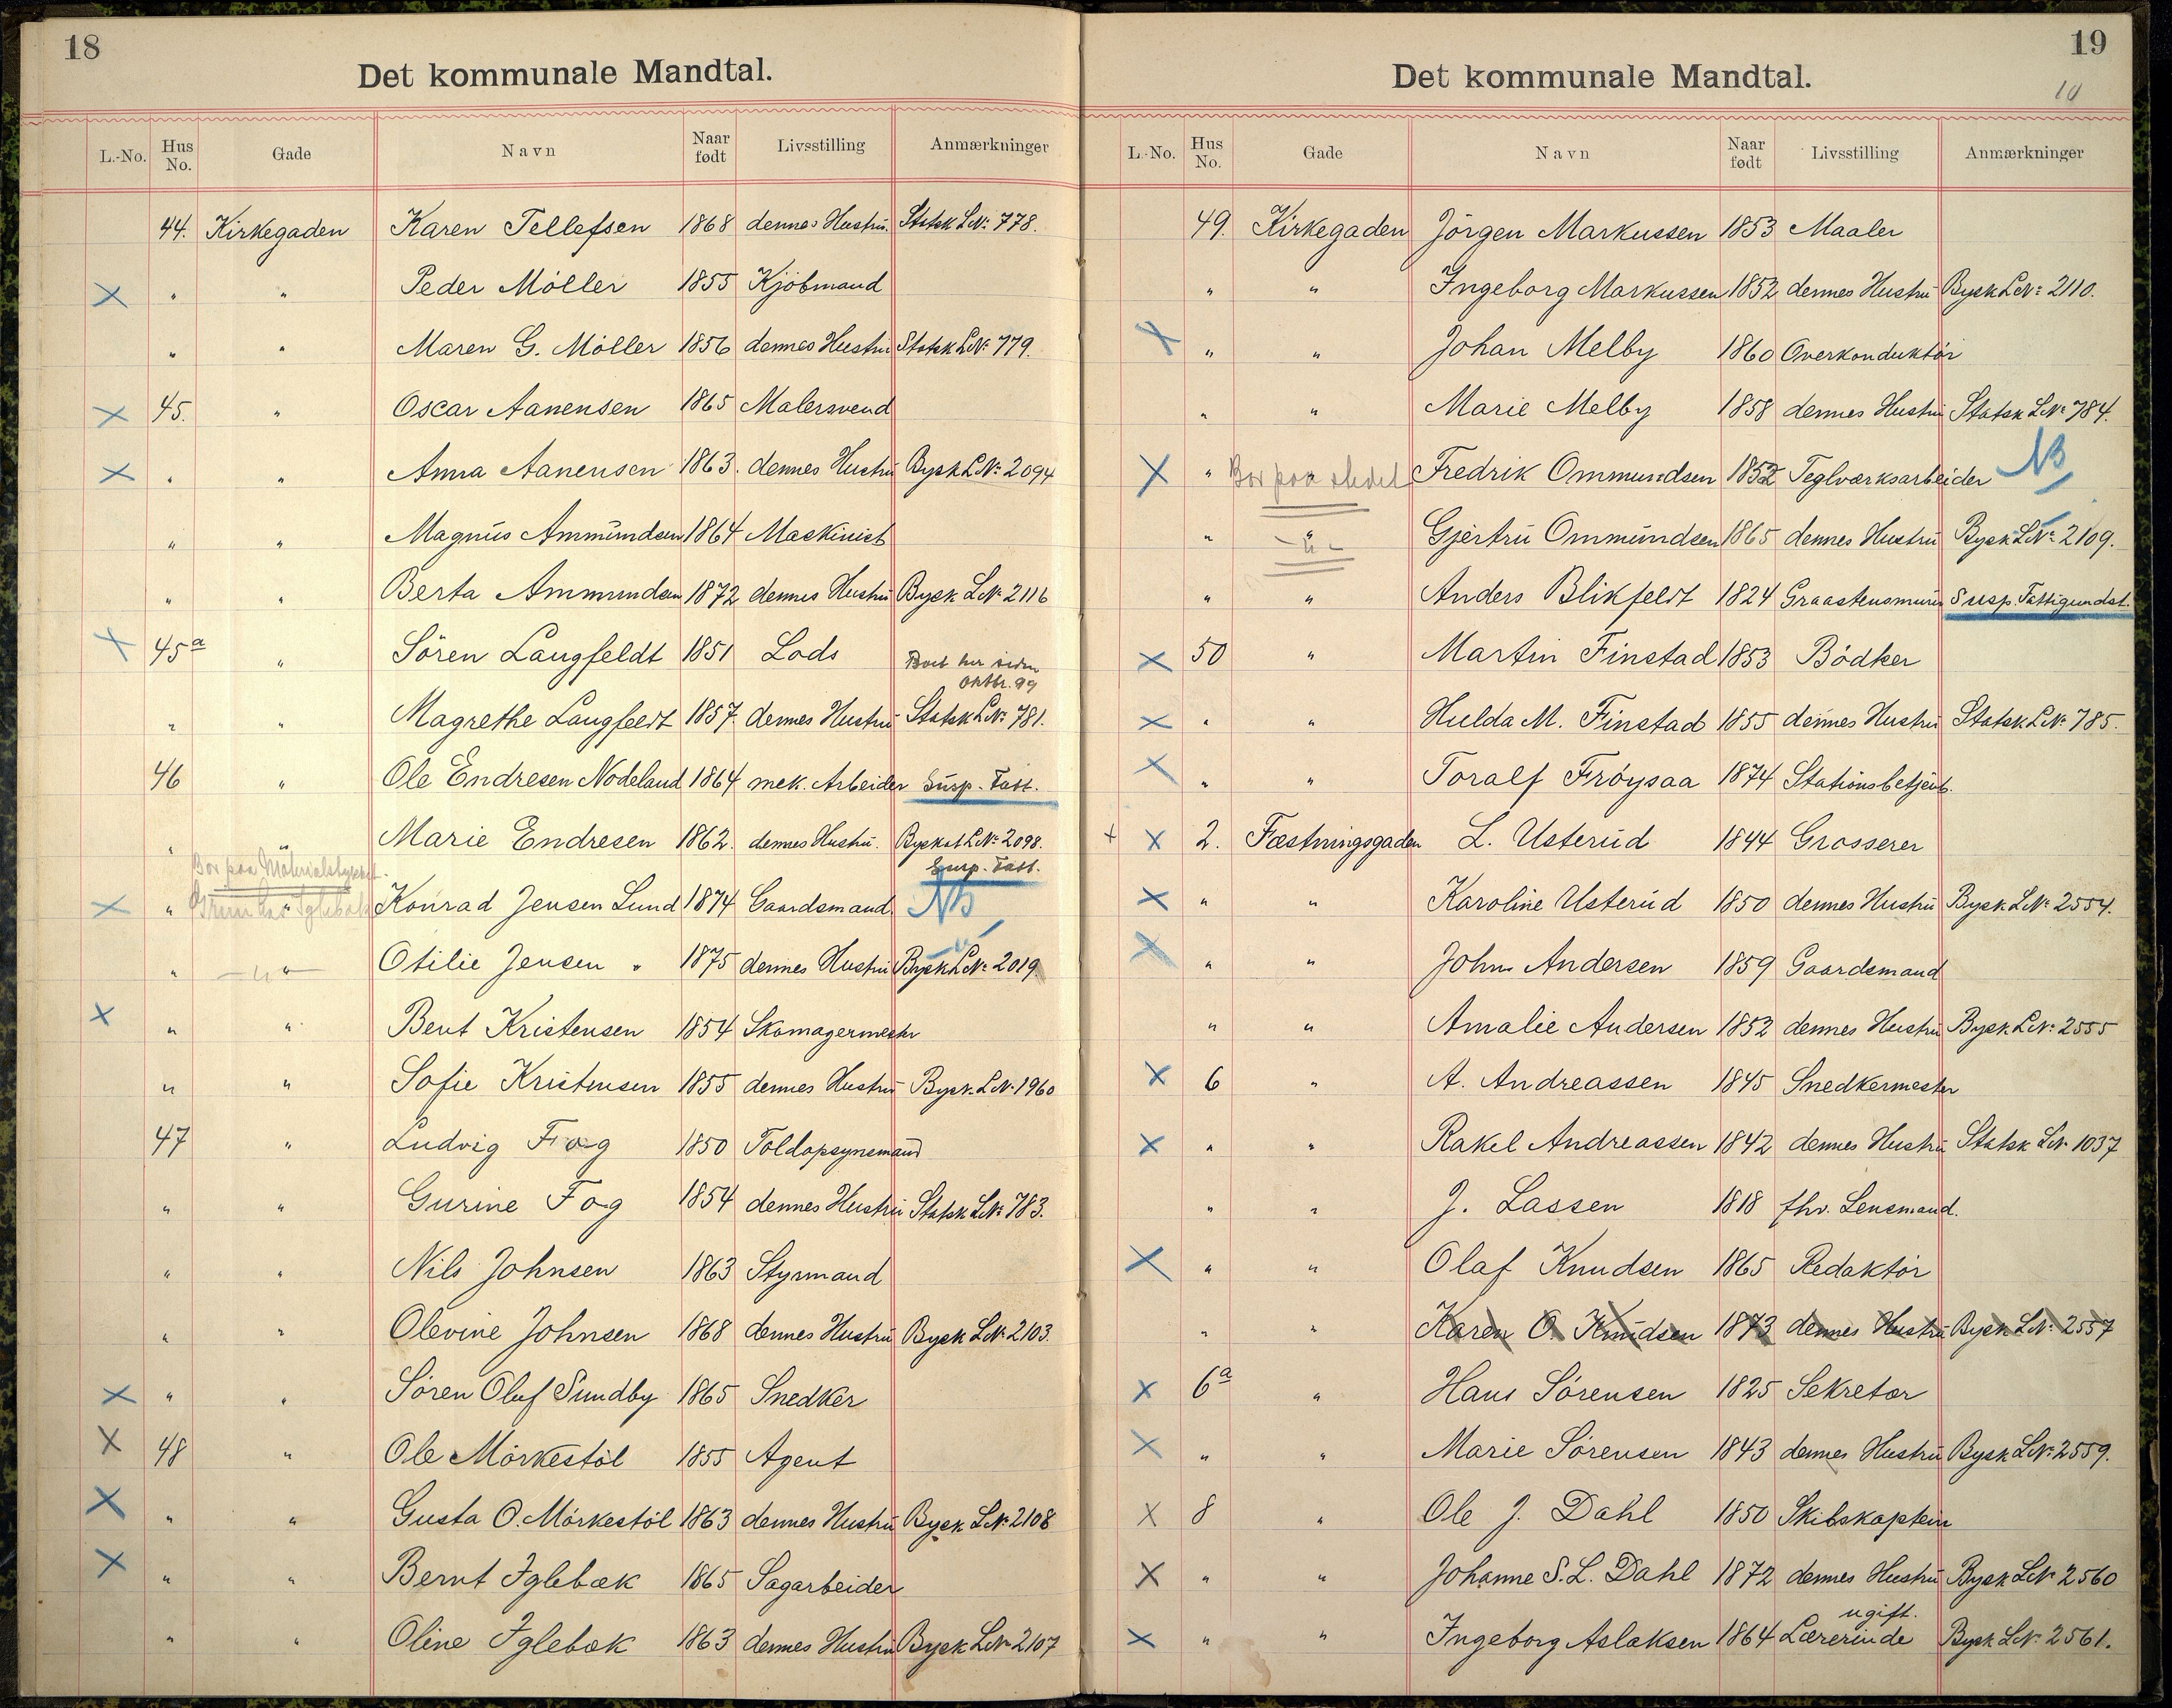 18
Det kommunale Mandtal.
L.-No. Hus No. Gade Navn Naar født Livsstilling Anmærkninger
44. Kirkegaden Karen Tellefsen 1868 dennes Hustru. Statsk LNo: 778.
X " " Peder Möller 1855 Kjöbmand
" " Maren G. Möller 1856 dennes Hustru Statsk LNo: 779.
X 45. " Oscar Aanensen 1865 Malersvend
X " " Anna Aanensen 1863. dennes Hustru Bysk LNo: 2094
" " Magnus Ammundsen 1864 Maskinist
" " Berta Ammundsen 1872 dennes Hustru Bysk LNo 2116
X 45a " Sören Langfeldt 1851 Lods Boet her siden Oktbr. 99
" " Magrethe Langfeldt 1857. dennes Hustru Statsk LNo: 781.
46 " Ole Endresen Nodeland 1864 mek. Arbeider Susp. Fatt.
" " Marie Endresen 1862. dennes Hustru. Byskat LNo: 2098.
Bor paa Materialstykket. Susp. Fatt.
X " " Konrad Jensen Lund 1874 Gaardsmand NB
" " Otilie Jensen " 1875 dennes Hustru Bysk LNo: 2019
X " " Bent Kristensen 1854 Skomagermester
" " Sofie Kristensen 1855 dennes Hustru Bysk. LNo. 1960
47 " Ludvig Fog 1850 Toldopsynsmand
" " Gurine Fog 1854 dennes Hustru Statsk LNo: 783.
" " Nils Johnsen 1863 Styrmand
" " Olevine Johnsen 1868 dennes Hustru Bysk LNo: 2103.
X " " Sören Oluf Sundby 1865 Snedker
X 48 " Ole Mörkestöl 1855 Agent
X " " Gusta O. Mörkestöl 1863 dennes Hustru Bysk LNo: 2108
X " " Bernt Iglebæk 1865 Sagarbeider
" " Oline Iglebæk 1863 dennes Hustru Bysk LNo 2107
19
Det kommunale Mandtal.
10
L.-No. Hus No. Gade Navn Naar født Livsstilling Anmærkninger
49. Kirkegaden Jörgen Markussen 1853 Maaler
" " Ingeborg Markussen 1852 dennes Hustru Bysk LNo: 2110.
X " " Johan Melby 1860 Overkonduktör
" " Marie Melby 1858 dennes Hustru Statsk LNo: 784.
X " Bor paa " Fredrik Ommundsen 1852 Teglværksarbeider NB
" " Gjertru Ommundsen 1865 dennes Hustru Bysk LNo: 2109.
" " Anders Blikfeldt 1824 Graastensmurer Susp. Fattigundst.
X 50 " Martin Finstad 1853 Bödker
X " " Hulda M. Finstad 1855 dennes Hustru Statsk LNo: 785.
X " " Toralf Fröysaa 1874 Stationsbetjent.
+ X 2. Fæstningsgaden L. Usterud 1844 Grosserer
X " " Karoline Usterud 1850 dennes Hustru Bysk LNo: 2554.
X " " John Andersen 1859 Gaardsmand
" " Amalie Andersen 1852 dennes Hustru Bysk. LNo: 2555
X 6 " A. Andreassen 1845 Snedkermester
X " " Rakel Andreassen 1842 dennes Hustru Statsk LNo 1037
" " J. Lassen 1818 fhv. Lensmand.
X " " Olaf Knudsen 1865 Redaktör
" " Karen O. Knudsen 1873 dennes Hustru Bysk LNo: 2557
X 6a " Hans Sörensen 1825 Sekretær
X " " Marie Sörensen 1843 dennes Hustru Bysk LNo: 2559.
X 8 " Ole J. Dahl 1850 Skibskaptein
X " " Johanne S. L. Dahl 1872 dennes Hustru Bysk LNo 2560
ugift.
X " " Ingeborg Aslaksen 1864 Lærerinde Bysk LNo: 2561.